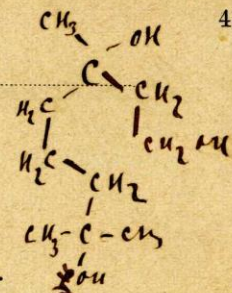 4
CH₃ OH
C CH₂
H₂C CH₂OH
H₂C CH₂
CH₃-C-CH₃
OH